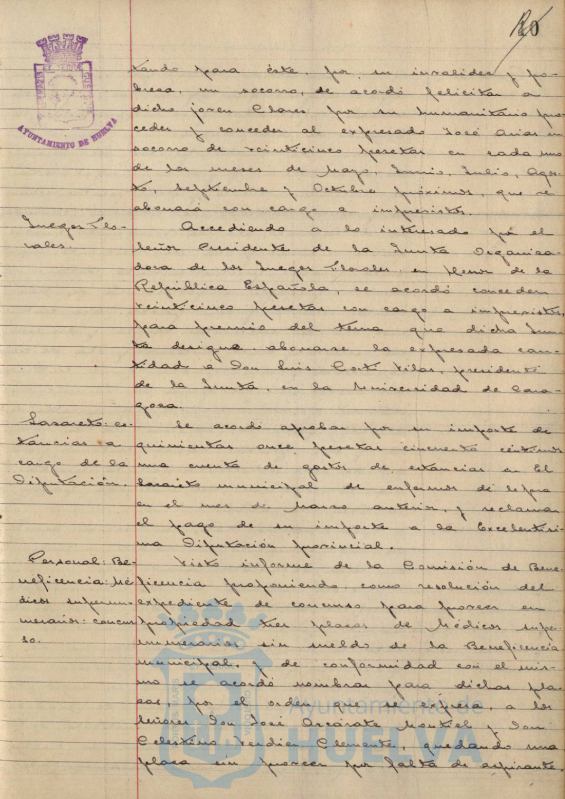 20
AYUNTAMIENTO DE HUELVA
tando para éste, por su invalidez y po-
breza, un socorro, se acordó felicitar a
dicho joven Clares, por su humanitario pro-
ceder y conceder al expresado José Arias un
socorro de veinticinco pesetas en cada uno
de los meses de Mayo, Junio, Julio, Agos-
to, Septiembre y Octubre próximos, que se
abonará con cargo a imprevistos.
Juegos Flo-
rales.
Accediendo a lo interesado por el
Señor Presidente de la Junta Organiza-
dora de los Juegos Florales en honor de la
República Española, se acordó conceder
veinticinco pesetas con cargo a imprevistos,
para premio del tema que dicha Jun-
ta designe, abonarse la expresada can-
tidad a Don Luis Vilas, presidente
de la Junta, en la Universidad de Zara-
goza.
Lazareto: es-
tancias a
cargo de la
Diputación.
Se acordó aprobar por su importe de
quinientas once pesetas cincuenta céntimos
una cuenta de gastos de estancias en El
Lazareto municipal de enfermos de lepra
en el mes de Marzo anterior, y reclamar
el pago de su importe a la Excelentísi-
ma Diputación provincial.
Personal: Be-
neficencia: Mé-
dicos supernu-
merarios: concur-
so.
Visto informe de la Comisión de Bene-
ficencia proponiendo como resolución del
expediente de concurso para proveer en
propiedad tres plazas de Médicos super-
numerarios sin sueldo de la Beneficencia
municipal, y de conformidad con el mis-
mo se acordó nombrar para dichas pla-
zas, por el orden que se expresa, a los
señores Don José Azcárate Montiel y Don
Celestino Verdier Clemente, quedando una
plaza sin proveer por falta de aspirante.
Ayuntamiento de
HUELVA